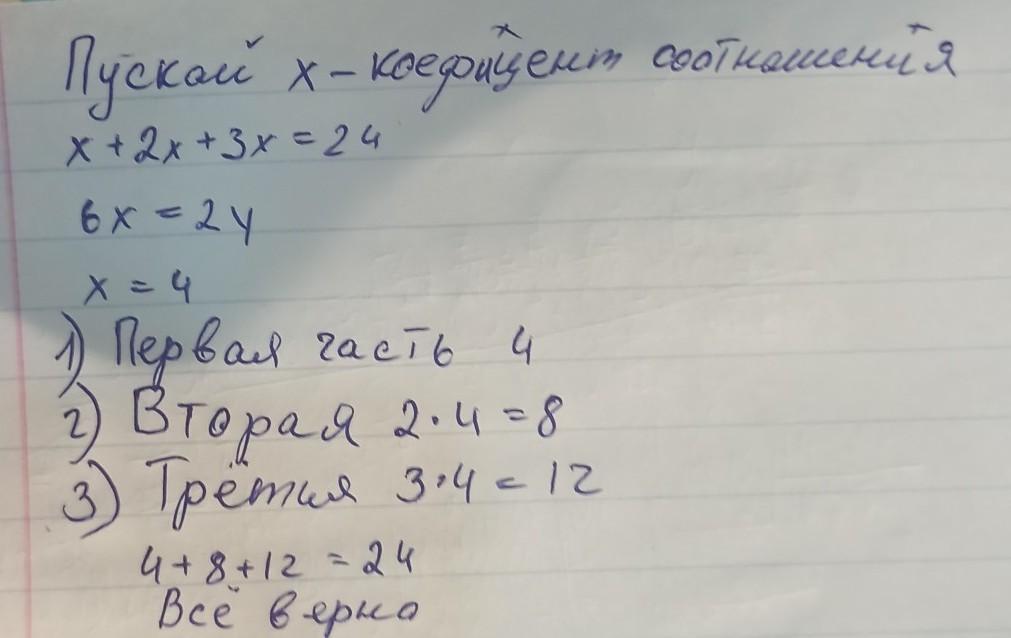 Пускай x - коефицент соотношения
x + 2x + 3x = 24
6x = 24
x = 4
1) Первая часть 4
2) Вторая 2·4 = 8
3) Третия 3·4 = 12
4 + 8 + 12 = 24
Всё верно